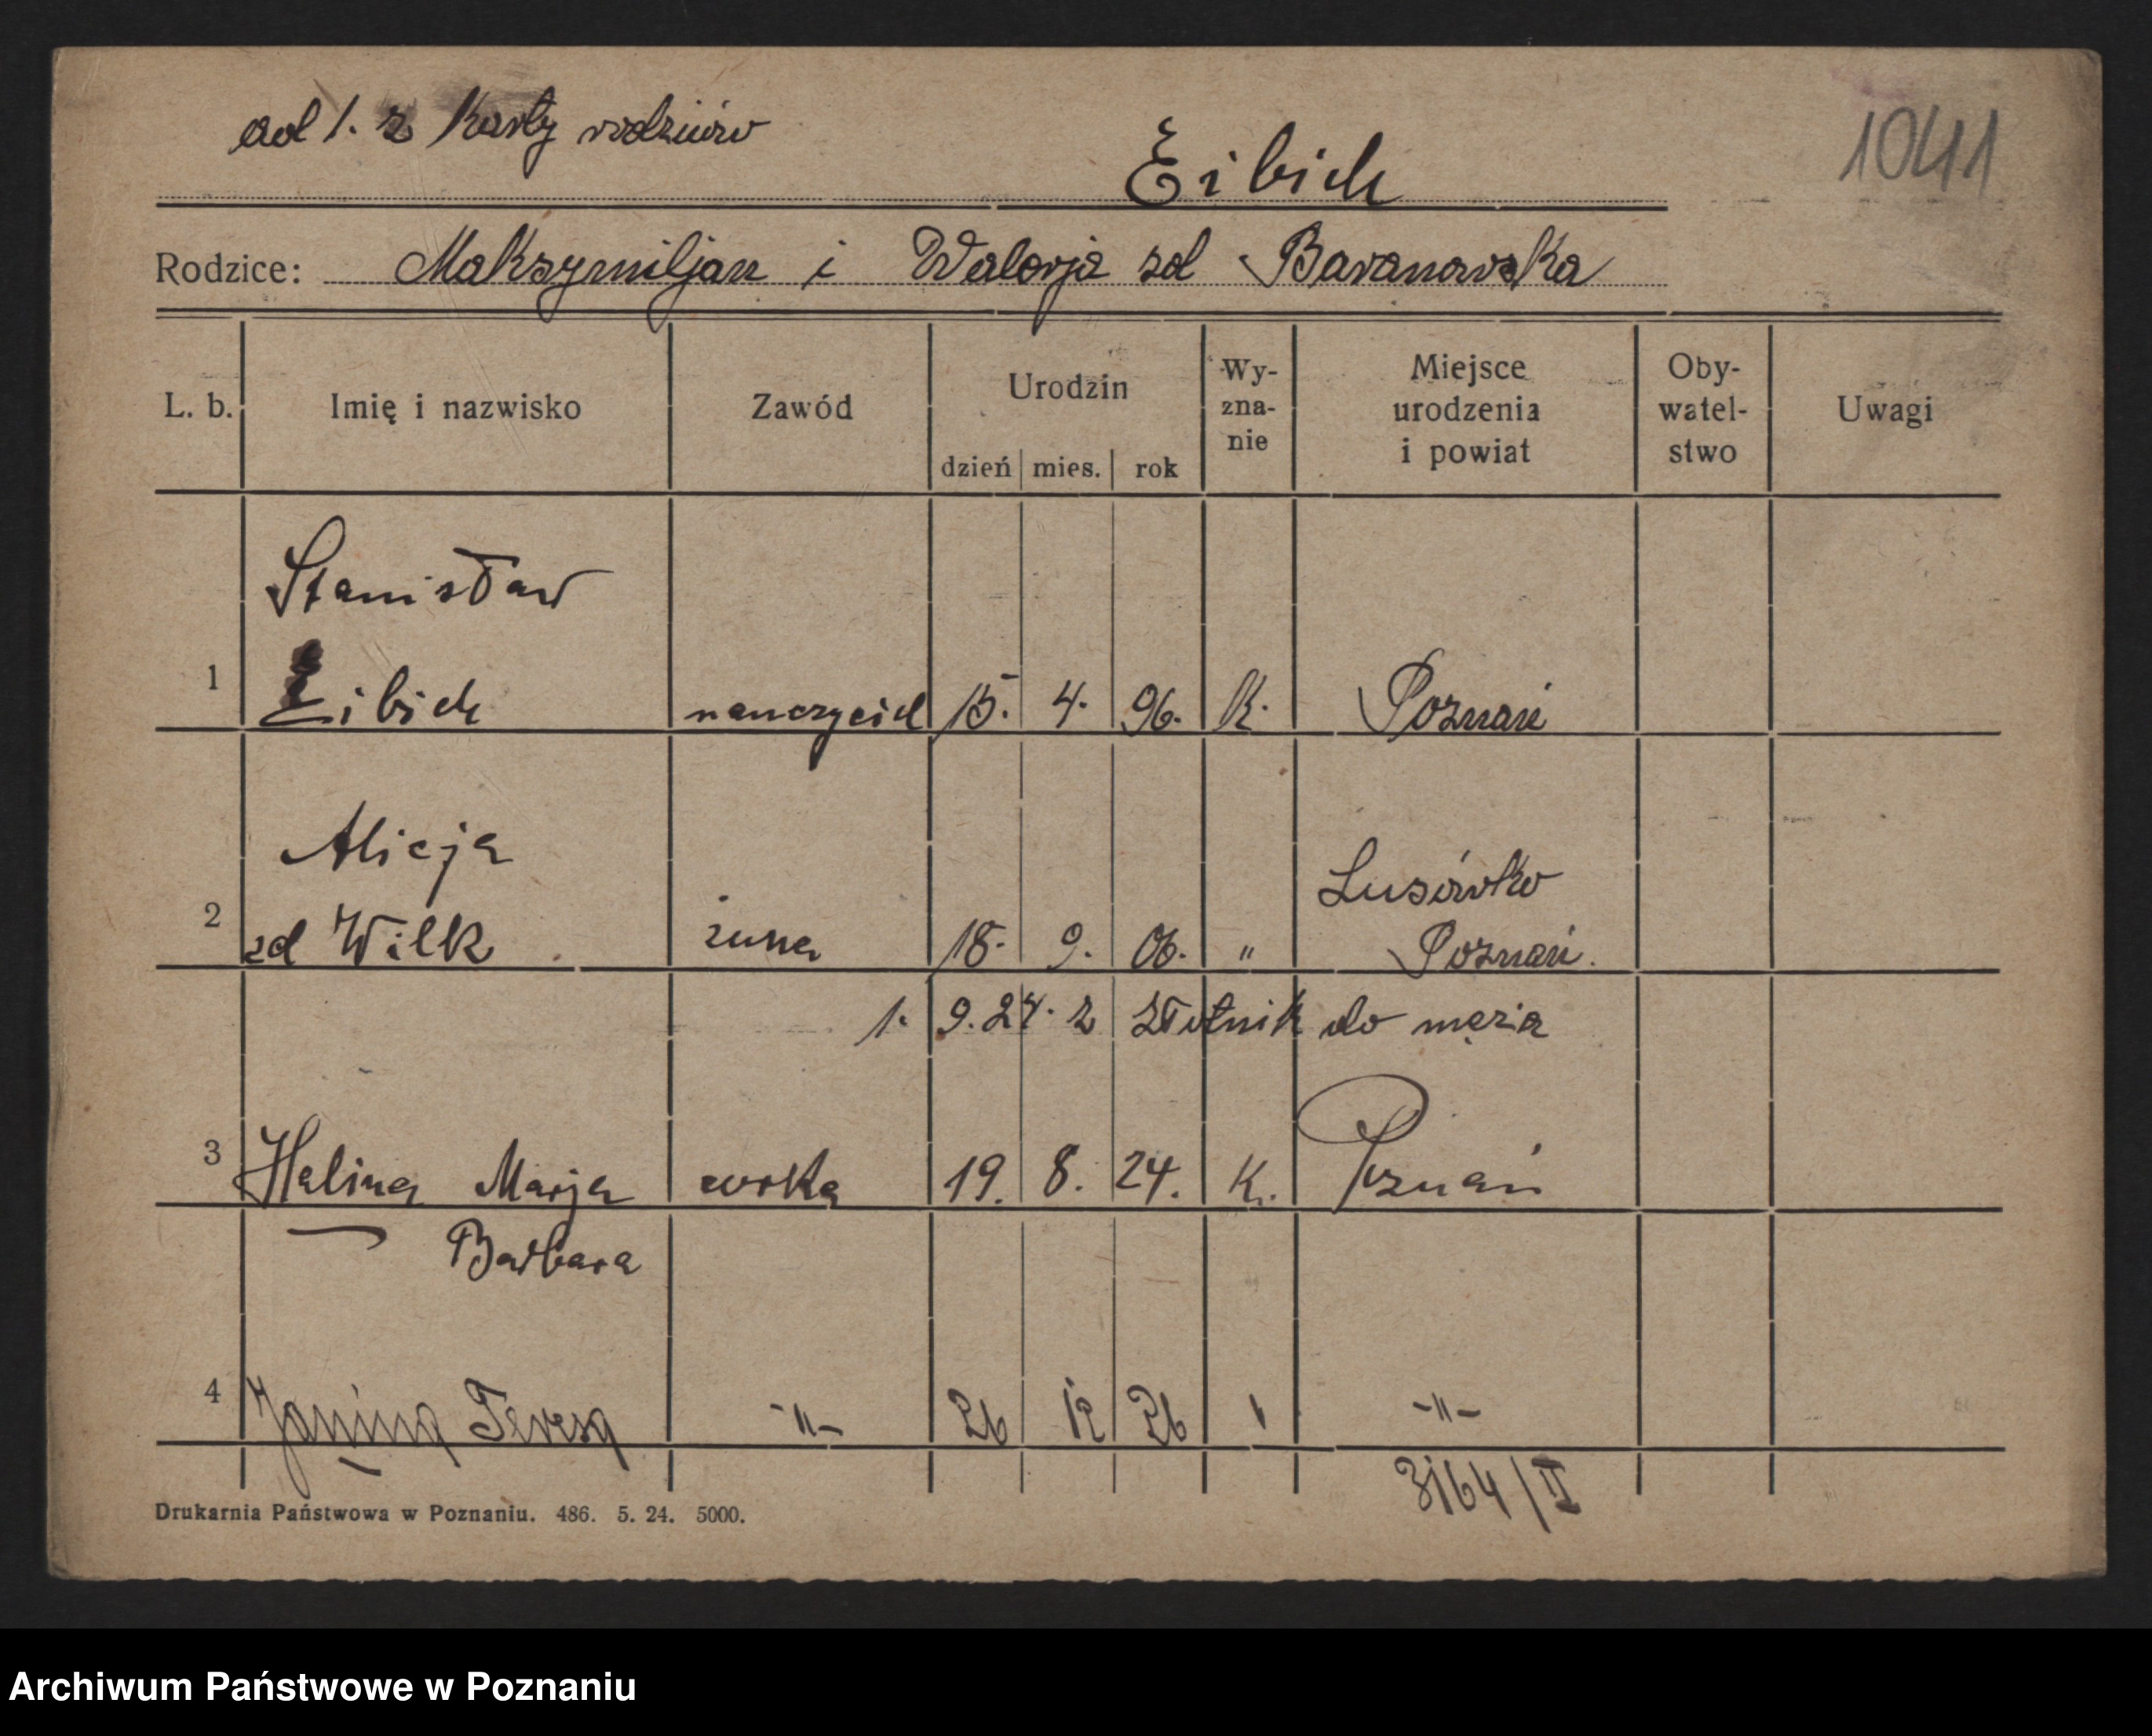 ad 1. z Karty rodziców
1041
Eibich
Rodzice: Maksymiljan i Walerja zd Baranowska
L. b. Imię i nazwisko Zawód Urodzin dzień mies. rok Wy-zna-nie Miejsce urodzenia i powiat Oby-watel-stwo Uwagi
Stanisław
1 Eibich nauczyciel 15. 4. 96. K. Poznań
Alicja Lusówko
2 zd Wilk żona 18. 9. 06. " Poznań.
1. 9. 24. z Złotnik do męża
3 Halina Marja córka 19. 8. 24. K. Poznań
Barbara
4 Janina Teresa -"- 26 12 26 " -"-
3164/II
Drukarnia Państwowa w Poznaniu. 486. 5. 24. 5000.
Archiwum Państwowe w Poznaniu